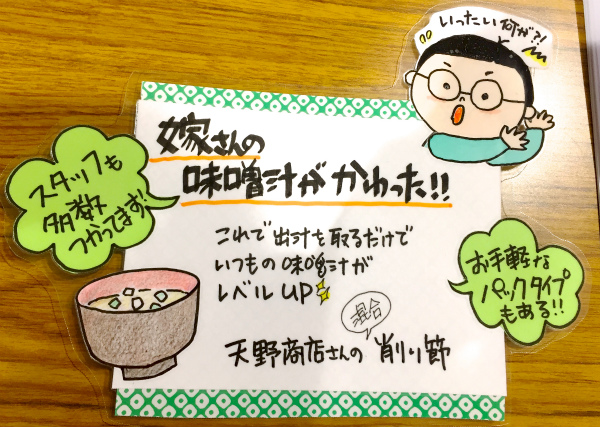 いったい何が?!
嫁さんの
味噌汁がかわった!!
スタッフも
多数
つかってます!
これで出汁を取るだけで
いつもの味噌汁が
レベルUP
お手軽な
パックタイプ
もある!!
混合
天野商店さんの削り節